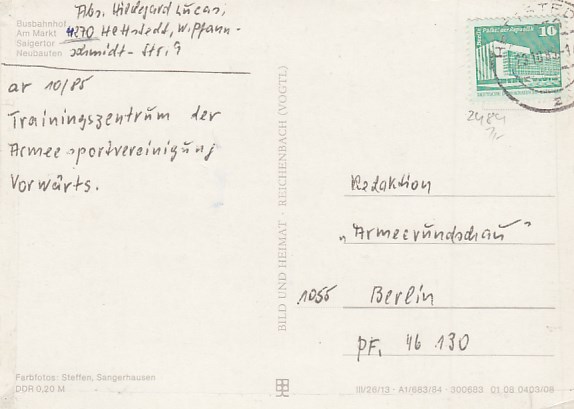 Busbahnhof
Am Markt
Saigertor
Neubauten
Abs. Hildegard Lucas,
4270 Hettstedt, W. Pfann-
schmidt-Str. 9
ar 10/85
Trainingszentrum der
Armeesportvereinigung
Vorwärts.
BILD UND HEIMAT · REICHENBACH (VOGTL)
Berlin, Palast der Republik
10
2484
Redaktion
„Armeerundschau"
1055 Berlin
PF. 46 130
Farbfotos: Steffen, Sangerhausen
DDR 0,20 M
III/26/13 · A1/683/84 · 300683 01 08 0403/08